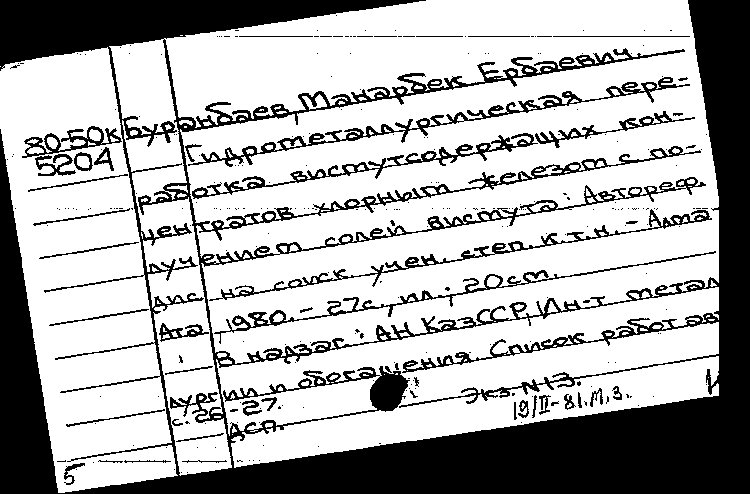 80-50к Буранбаев, Манарбек Ербаевич.
5204 Гидрометаллургическая пере-
работка висмутсодержащих кон-
центратов хлорным железом с по-
лучением солей висмута: Автореф.
дис. на соиск. учен. степ. к.т.н. - Алма
Ата, 1980. - 27с., ил.; 20см.
В надзаг.: АН КазССР, Ин-т метал
лургии и обогащения. Список работ авт
с. 26-27.
Экз. N13.
ДСП.
19/II-81.М.З.
5